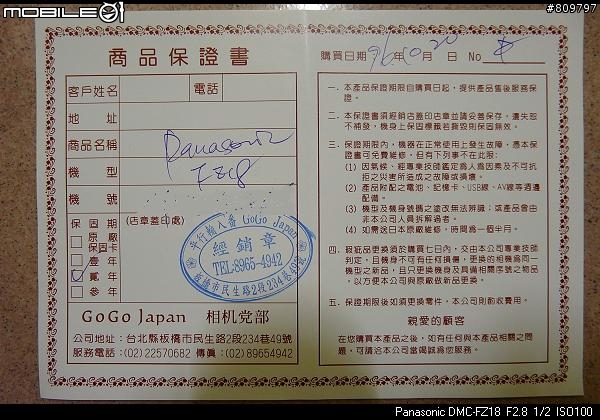 MOBILE01
#809797
商品保證書
客戶姓名 電話
地址
商品名稱 Panasonic
機型 FZ18
機號
保固期 (店章蓋印處)
原廠保固卡
壹年
貳年
參年
平行輸入番 GoGo Japan
經銷章
TEL:8965-4942
板橋市民生路2段234巷49號
GoGo Japan 相机党部
公司地址：台北縣板橋市民生路2段234巷49號
服務電話：(02)22570682 傳真：(02)89654942
購買日期 96年10月20日 No
一. 本產品保證期限自購買日起，提供產品售後服務保證。
二. 本保證書須經銷店蓋印店章並請妥善保存，遺失恕不補發，機身上保固標籤若撕毀則保固無效。
三. 保證期限內，機器在正常使用上發生故障，憑本保證書可免費維修，但有下列事不在此限：
(1) 因氣候、經專業技師鑑定為人為因素及不可抗拒之災害所造之故障或損壞。
(2) 產品附配之電池、記憶卡、USB線、AV線等週邊配備。
(3) 機型及機身號碼之塗改無法辨識；或產品會由非本公司人員拆解過者。
(4) 如需送日本原廠維修，時間為一個半月。
四. 瑕疵品更換須於購買七日內，交由本公司專業技師判定，且機身不可有任何損傷，更換的相機為同一機型之新品，且只更換機身及具備相關序號之物品，以方便本公司與原廠做新品更換。
五. 保證期限後如須更換零件，本公司則酌收費用。
親愛的顧客
在您購買本產品之後，如有任何與本產品相關之問題，可請洽本公司當竭誠為您服務。
Panasonic DMC-FZ18 F2.8 1/2 ISO100